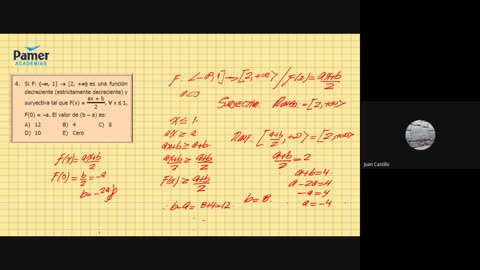 Pamer
ACADEMIAS
4. Si F: ⟨-∞, 1] → [2, +∞⟩ es una función
decreciente (estrictamente decreciente) y
suryectiva tal que F(x) = (ax + b)/2, ∀ x ≤ 1,
F(0) = -a. El valor de (b – a) es:
A) 12 B) 4 C) 8
D) 10 E) Cero
f(x) = (ax+b)/2
F(0) = b/2 = -a
b = -2a
F: ⟨-∞, 1] → [2, +∞⟩ / F(x) = (ax+b)/2
a<0
SURYECTIVA RANGO = [2, +∞⟩
x ≤ 1
ax ≥ a
ax+b ≥ a+b
(ax+b)/2 ≥ (a+b)/2
F(x) ≥ (a+b)/2
∴ b-a = 8+4 = 12
[(a+b)/2, +∞⟩ = [2, +∞⟩
(a+b)/2 = 2
a+b = 4
a-2a = 4
-a = 4
a = -4
b = 8
Juan Castillo